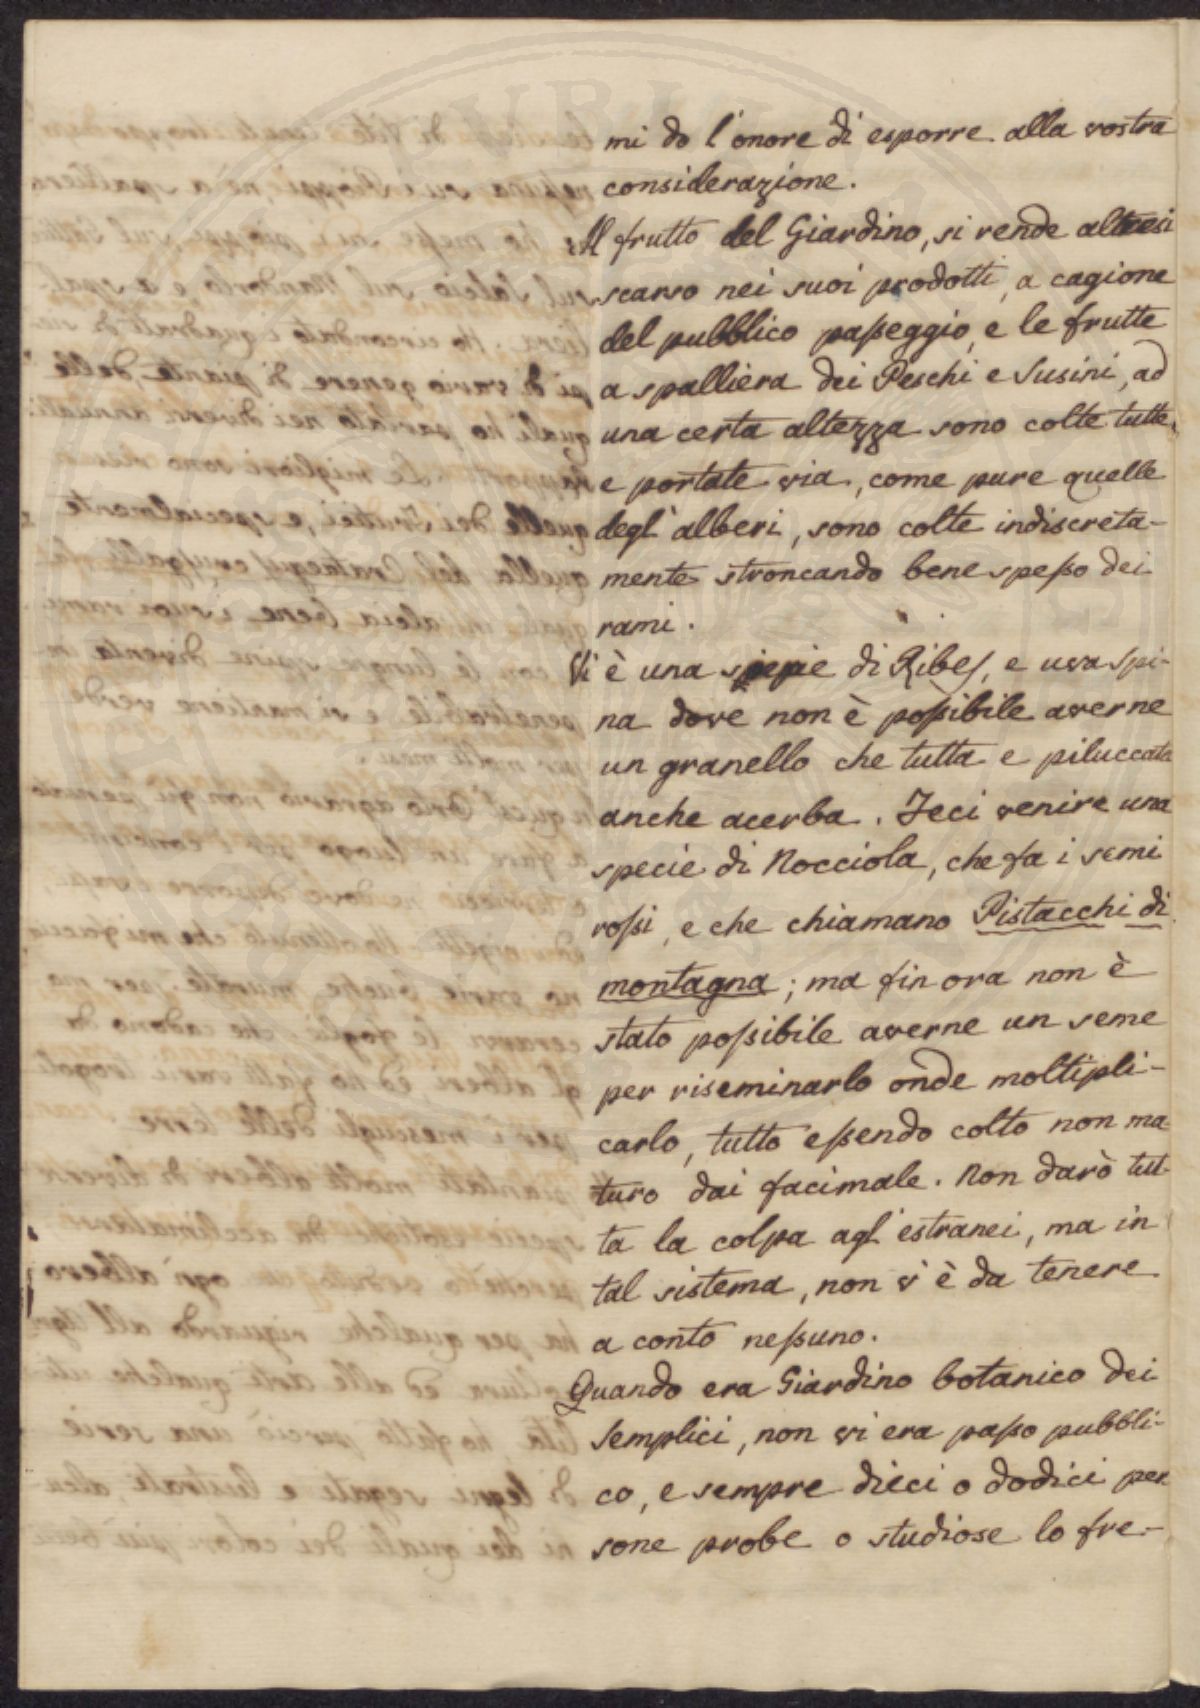 mi do l'onore di esporre alla vostra
considerazione.
Il frutto del Giardino, si rende altresi
scarso nei suoi prodotti, a cagione
del pubblico paſseggio, e le frutte
a spalliera dei Peschi e Susini, ad
una certa altezza sono colte tutte,
e portate via, come pure quelle
degl'alberi, sono colte indiscreta-
mente stroncando bene speſso dei
rami.
Vi è una siepie di Ribes, e uva spi-
na dove non è poſsibile averne
un granello che tutta e piluccata
anche acerba. Feci venire una
specie di Nocciola, che fa i semi
roſsi, e che chiamano Pistacchi di
montagna; ma fin ora non è
stato poſsibile averne un seme
per riseminarlo onde moltipli-
carlo, tutto eſsendo colto non ma
turo dai facimale. Non darò tut-
ta la colpa agl'estranei, ma in
tal sistema, non v'è da tenere
a conto neſsuno.
Quando era Giardino botanico dei
Semplici, non vi era paſso pubbli-
co, e sempre dieci o dodici per
sone probe o studiose lo fre-